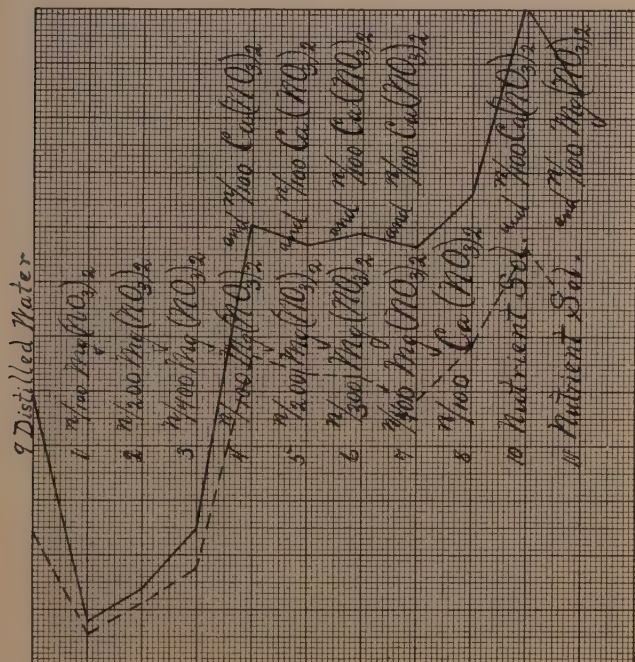 9 Distilled Water
1 n/100 Mg(NO3)2
2 n/200 Mg(NO3)2
3 n/400 Mg(NO3)2
4 n/100 Mg(NO3)2 and n/100 Ca(NO3)2
5 n/200 Mg(NO3)2 and n/100 Ca(NO3)2
6 n/300 Mg(NO3)2 and n/100 Ca(NO3)2
7 n/400 Mg(NO3)2 and n/100 Ca(NO3)2
8 n/100 Ca(NO3)2
10 Nutrient Sol. and n/100 Ca(NO3)2
11 Nutrient Sol. and n/100 Mg(NO3)2